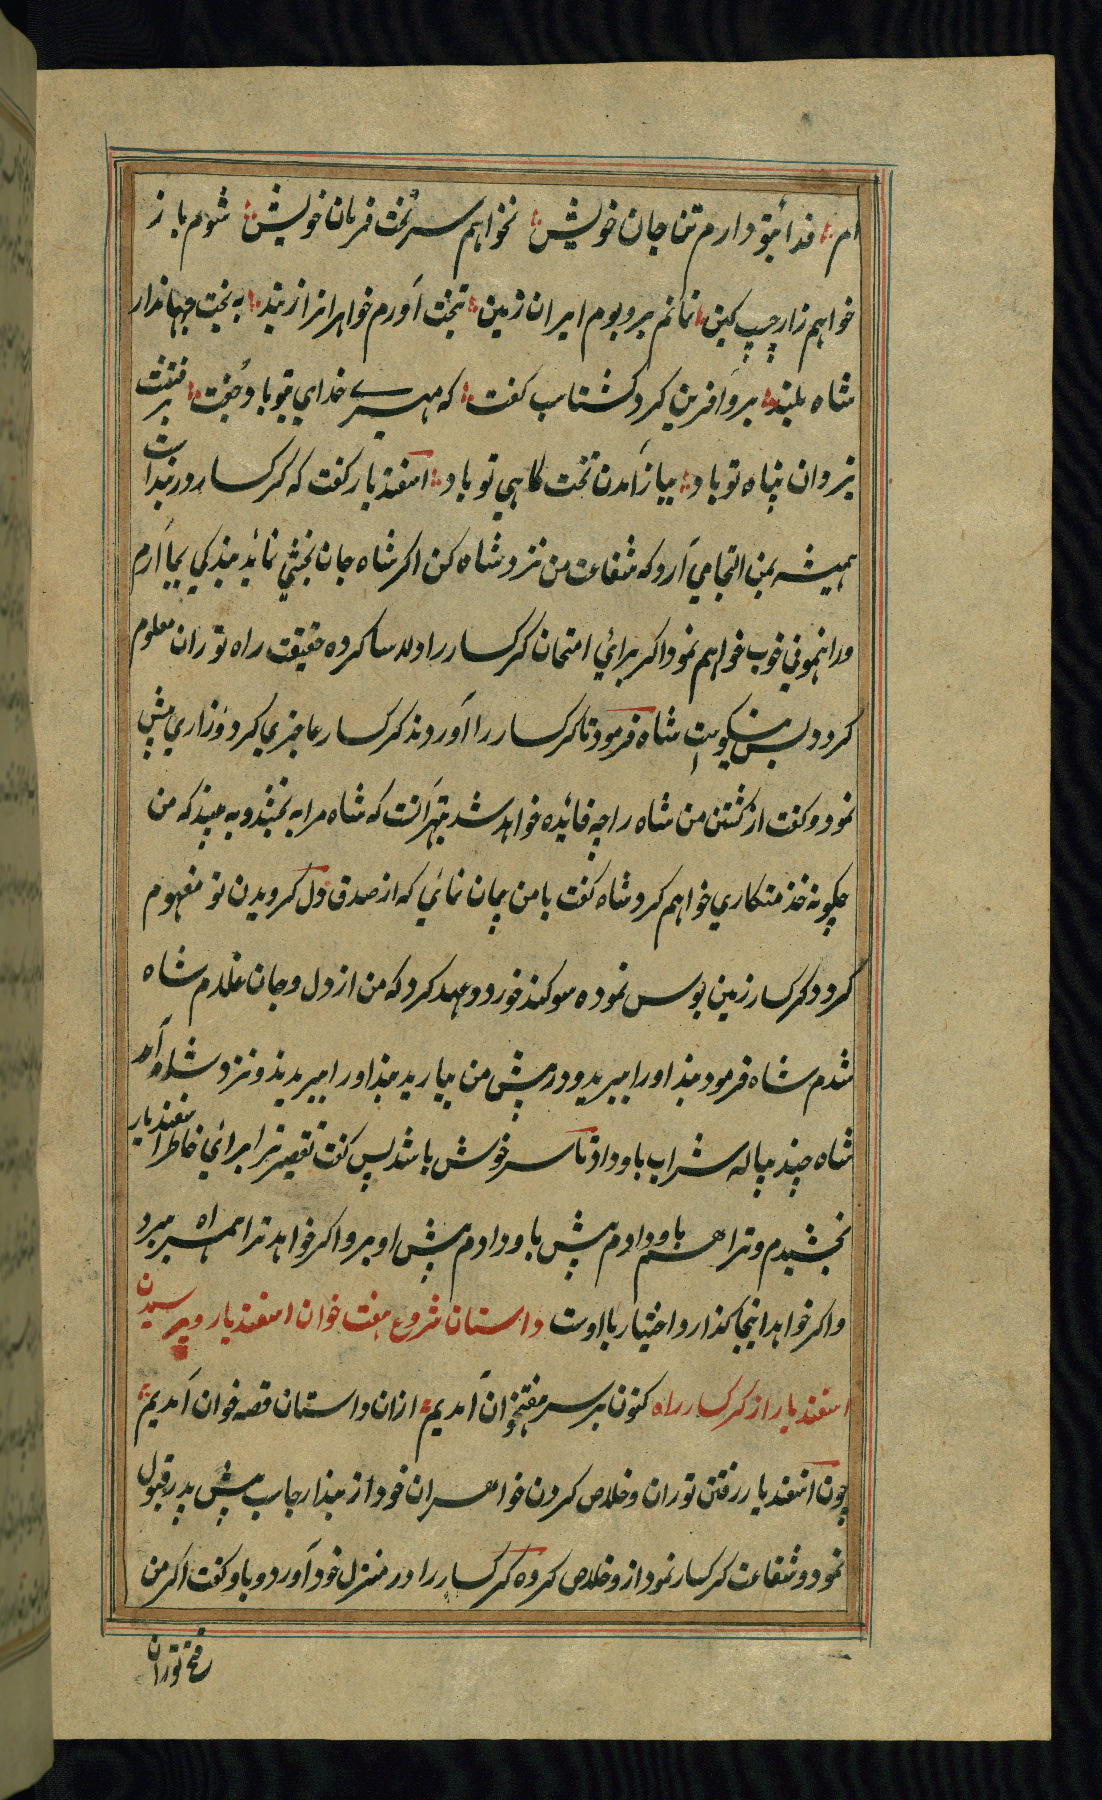 ام ؞ فدا بتو دارم تن جان خویش ؞ نخواهم سر تخت فرمان خویش ؞ شوم باز
خواهم زارچپ کین ؞ نمانم بر و بوم ایران زمین ؞ تبخت آورم خواهرانرا ز بند ؞ به بخت جهاندار
شاه بلند ؞ برو آفرین کرد گشتاسب کفت ؞ که مهر خدای بتو باد جفت ؞ برفتنت
یزدان پناه تو باد ؞ بباز آمدن تخت کاهی تو باد ؞ اسفندیار کفت که کرکسار در بند است
همیشه بمن التجا می آرد که شفاعت من نزد شاه کن اکر شاه جان بخشی نماید بندکی بجا آرم
و راهنمونی خوب خواهم نمود اکر برای امتحان کرکسار را دلاسا کرده حقیقت راه توران معلوم
کردد بس نیکوست شاه فرمود تا کرکسار را آوردند کرکسار عاجزی کرد و زاری پیش
نمود و کفت از کشتن من شاه را چه فائده خواهد شد بهتر آنست که شاه مرا به بخشد و به بیند که من
چکونه خذمتکاری خواهم کرد شاه کفت با من پیمان نمائی که از صدق دل کرویدن تو مفهوم
کردد کرکسار زمین بوس نموده سوکند خورد و عهد کرد که من از دل و جان غلام شاه
شدم شاه فرمود بند او را ببرید و در پیش من بیارید بند او را ببریدند و نزد شاه آمد
شاه چند پیاله شراب باو داد تا سرخوش باشد پس کفت تقصیر ترا برای خاطر اسفندیار
بخشیدم و ترا هم باو دادم پیش باو دادم پیش او برو اکر خواهد ترا همراه ببرد
و اکر خواهد اینجا کذارد اختیار با اوست داستان شروع هفت خوان اسفندیار و پرسیدن
اسفندیار از کرکسار راه کنون بر سر هفتخوان آمدیم ؞ ازان داستان قصه خوان آمدیم ؞
چون اسفندیار رفتن توران و خلاص کردن خواهران خود از بند ارجاسب پیش پدر قبول
نمود و شفاعت کرکسار نمود از و خلاص کرده کرکسار را در منزل خود آورد و باو کفت اکر من
فتح توران